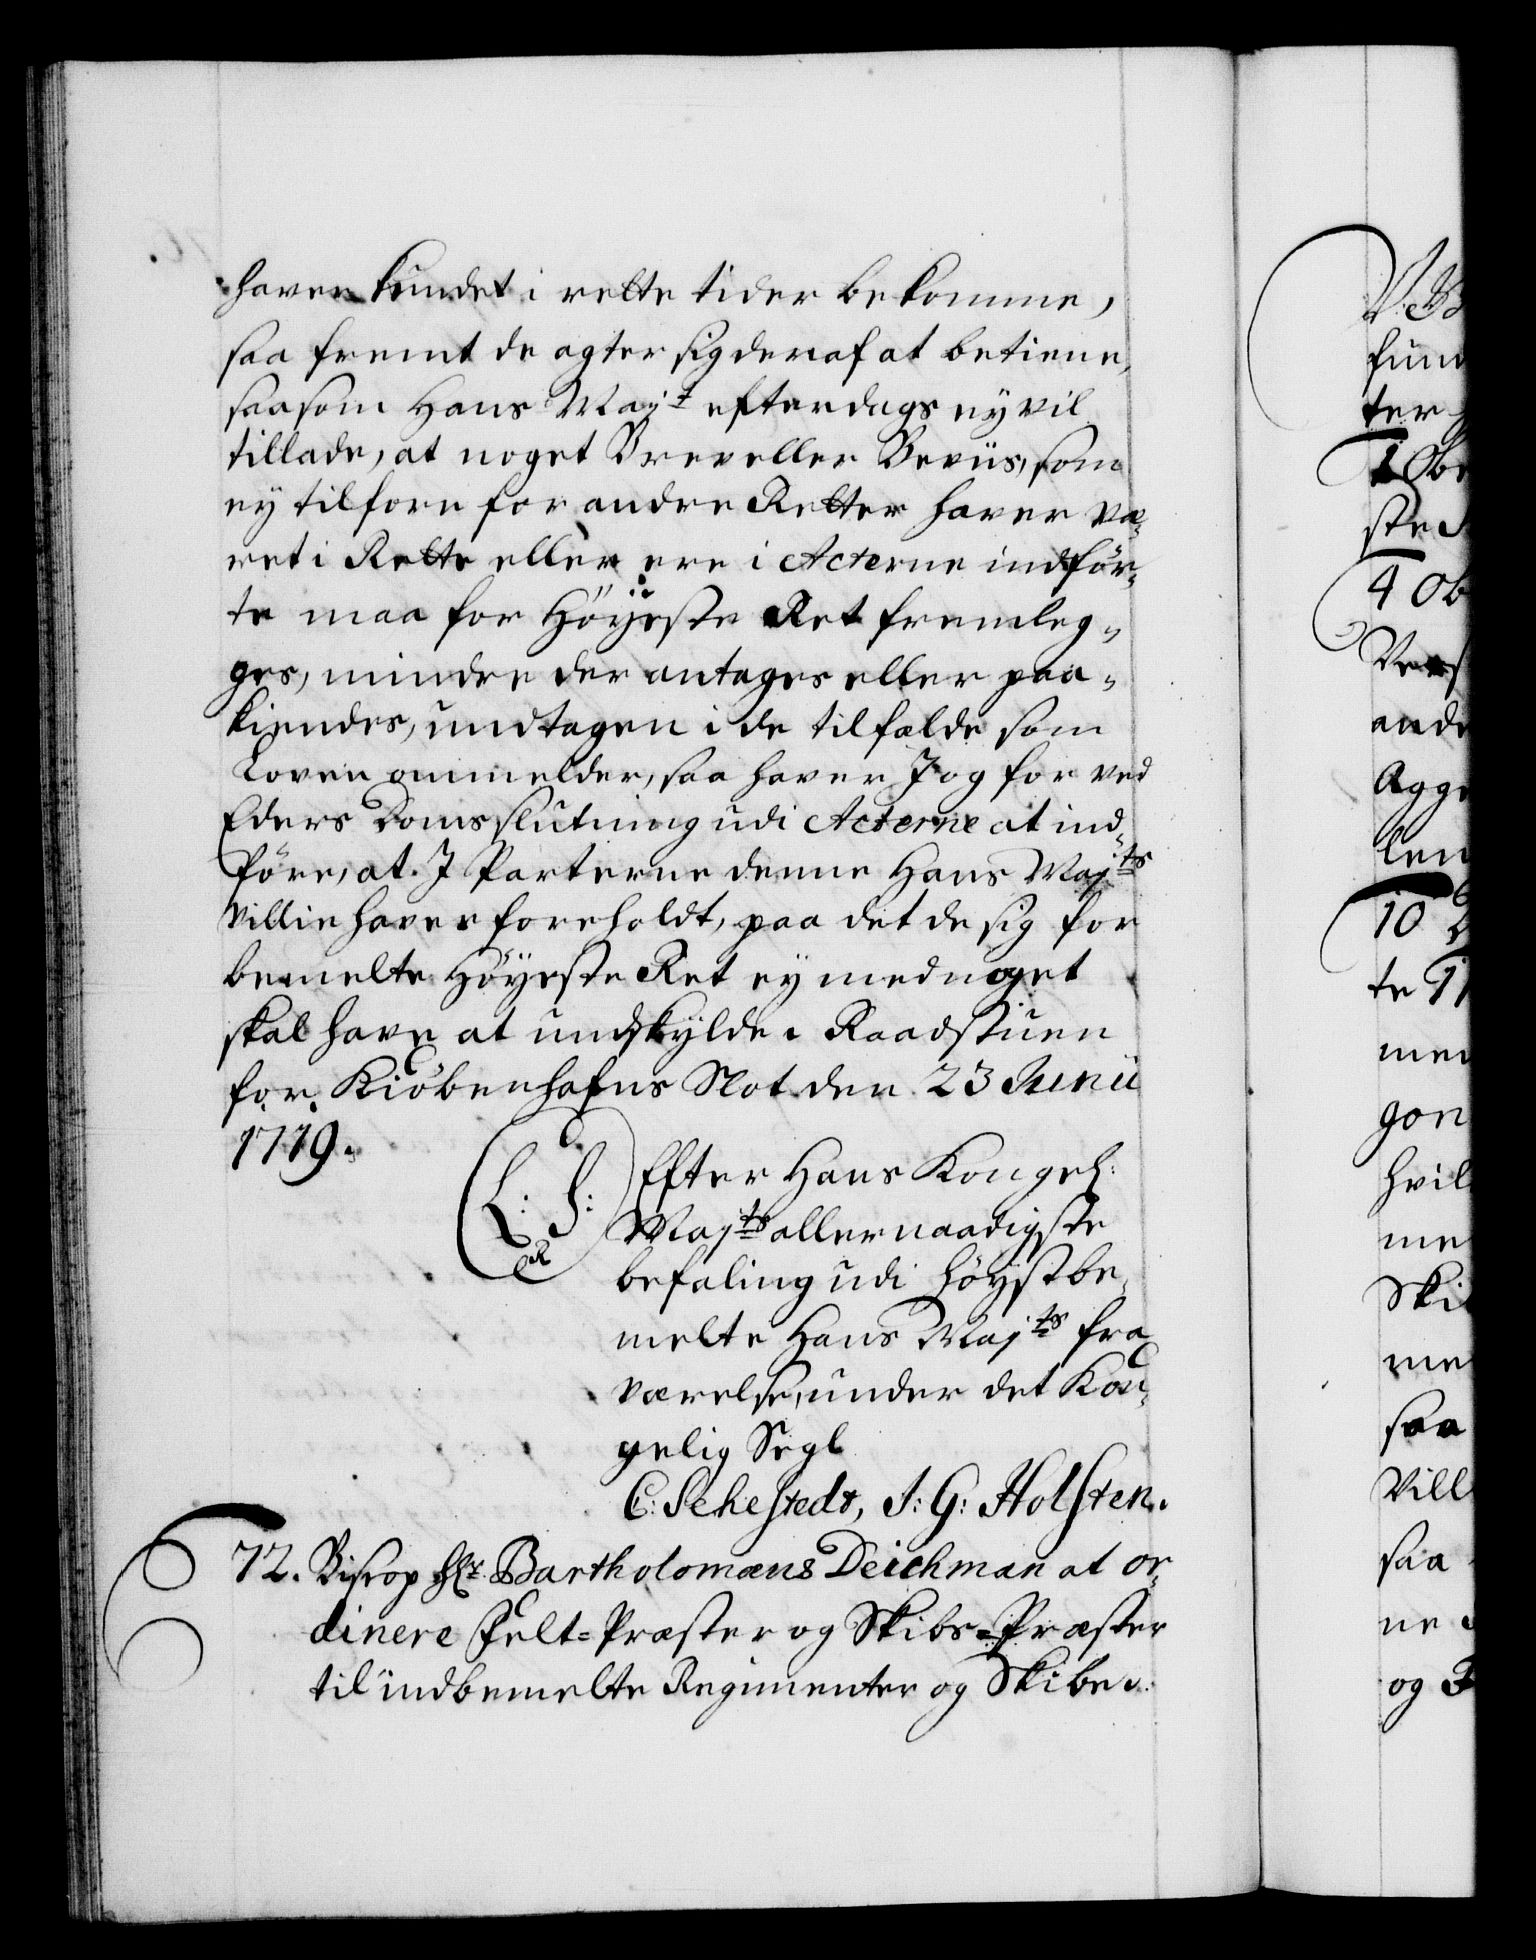 haver kundet i rette tider bekomme,
saa fremt de agter sig deraf at betiene,
saasom Hans Majt efterdags ey vil
tillade, at noget Brev eller Beviis, som
ey tilforn for andre Retter haver væ-
ret i Rette eller ere i Acterne indför-
te maa for Höyeste Ret fremleg-
ges, mindre der antages eller paa-
kiendes, undtagen i de tilfælde som
Loven ommelder, saa haver J og for ved
Eders Doms slutning udi Acterne at ind-
före, at J Parterne denne Hans Majts
Villie haver foreholdt, paa det de sig for
bemelte Höyeste Ret ey med noget
skal have at undskylde. Raadstuen
for Kiöbenhafns Slot den 23 Junii
1719.
(L: S:)
R
Efter Hans Kongel:
Majts allernaadigste
befaling udi höystbe-
melte Hans Majts fra
værelse, under det Kon-
gelig Segl
C: Sehestedt, J: G: Holsten.
72. Biscop Hr Bartholomæus Deichman at or-
dinere Felt=Præster og Skibs=Præster
til indbemelte Regimenter og Skibe.
V. B
fun
ter
1 Ob
ste
4 Ob
Vers
ande
Agge
len
10
te 11
men
gon
hvil
me
Ski
me
saa
Vill
saa
ne
og F